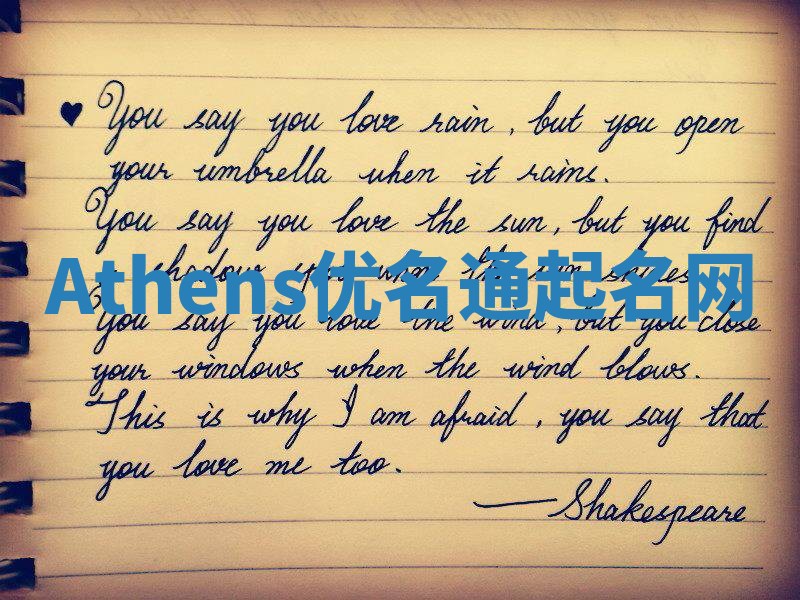 ♥ You say you love rain, but you open
your umbrella when it rains.
You say you love the sun, but you find
a shadow spot when the sun shines.
Athens优名通起名网
You say you love the wind, but you close
your windows when the wind blows.
This is why I am afraid, you say that
you love me too.
— Shakespeare